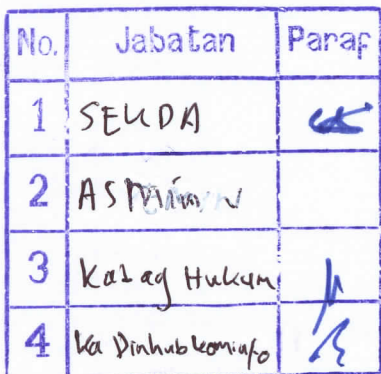 No. Jabatan Paraf
1 SEKDA
2 ASMin
3 Kabag Hukum
4 Ka Dinhubkominfo